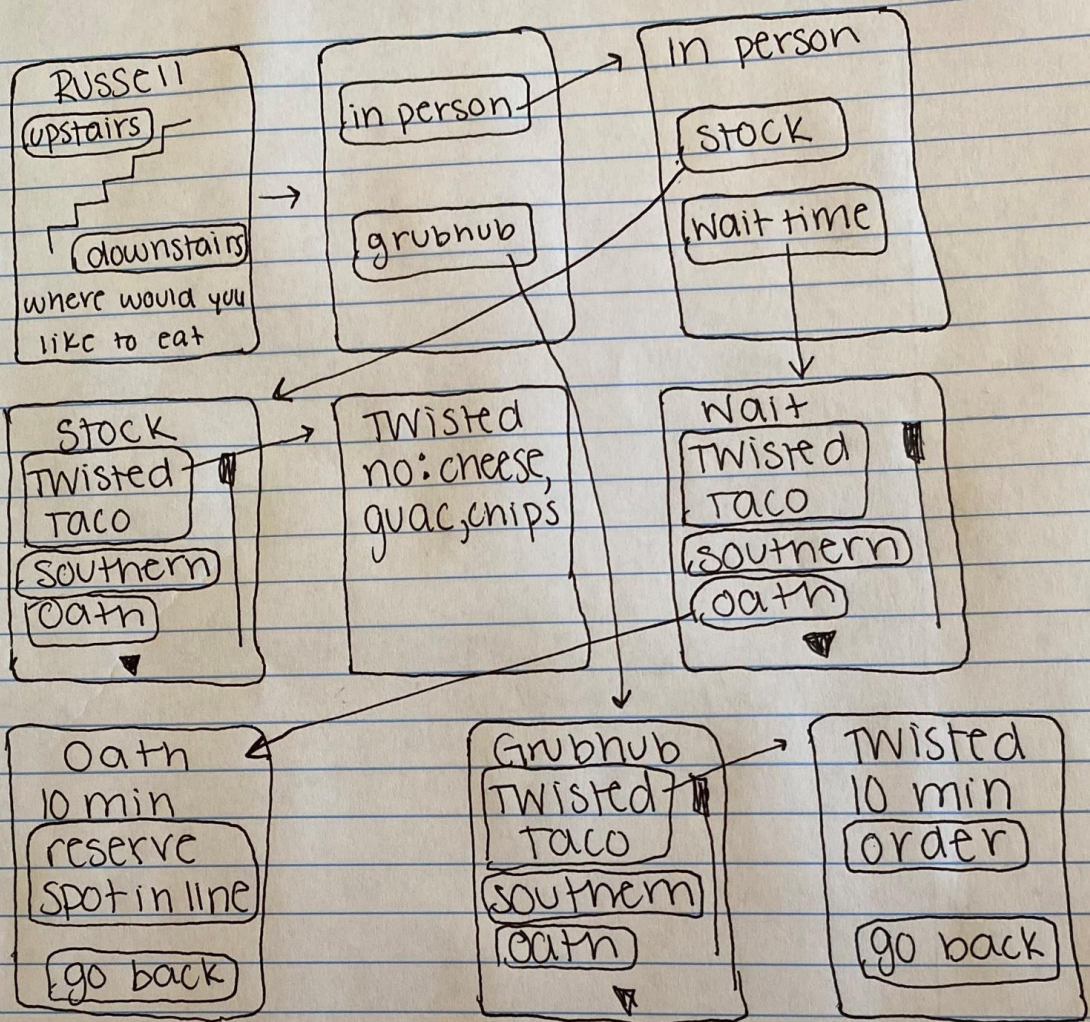 Russell
upstairs
downstairs
where would you
like to eat
in person
grubhub
In person
stock
wait time
Stock
Twisted
Taco
southern
Oath
Twisted
no: cheese,
guac, chips
Wait
Twisted
Taco
southern
oath
Oath
10 min
reserve
spot in line
go back
Grubhub
Twisted
Taco
southern
oath
Twisted
10 min
order
go back